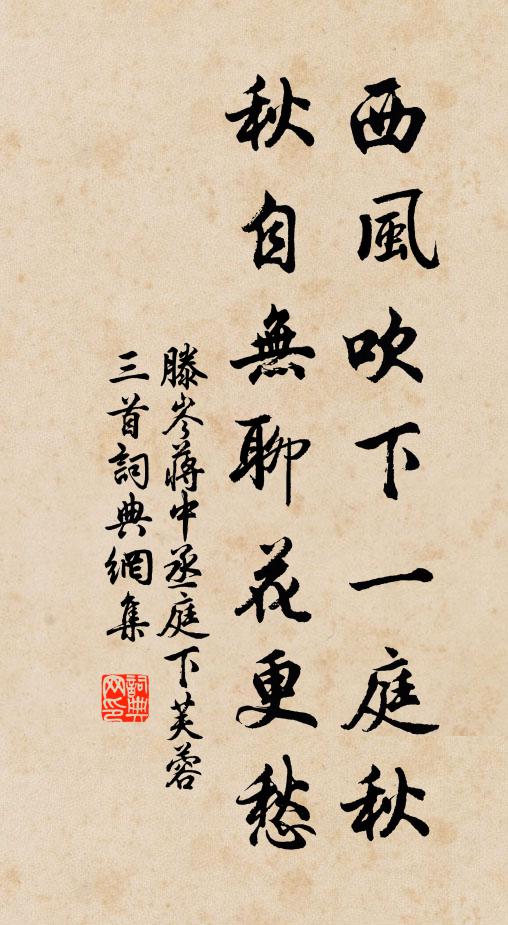 西風吹下一庭秋
秋自無聊花更愁
滕岑蔣中丞庭下芙蓉
三首詞典網集
詞典
网印